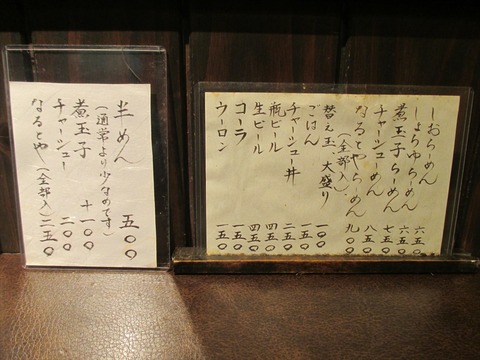 しおらーめん 六五〇
しょうゆらーめん 六五〇
煮玉子らーめん 七五〇
チャーシューめん 八五〇
なるとやらーめん 九〇〇
(全部入)
替え玉、大盛り 一〇〇
ごはん 一五〇
チャーシュー丼 二五〇
瓶ビール 四五〇
生ビール 四五〇
コーラ 一五〇
ウーロン 一五〇
半めん 五〇〇
(通常より少なめです)
煮玉子 +一〇〇
チャーシュー 二〇〇
なるとや(全部入) 二五〇